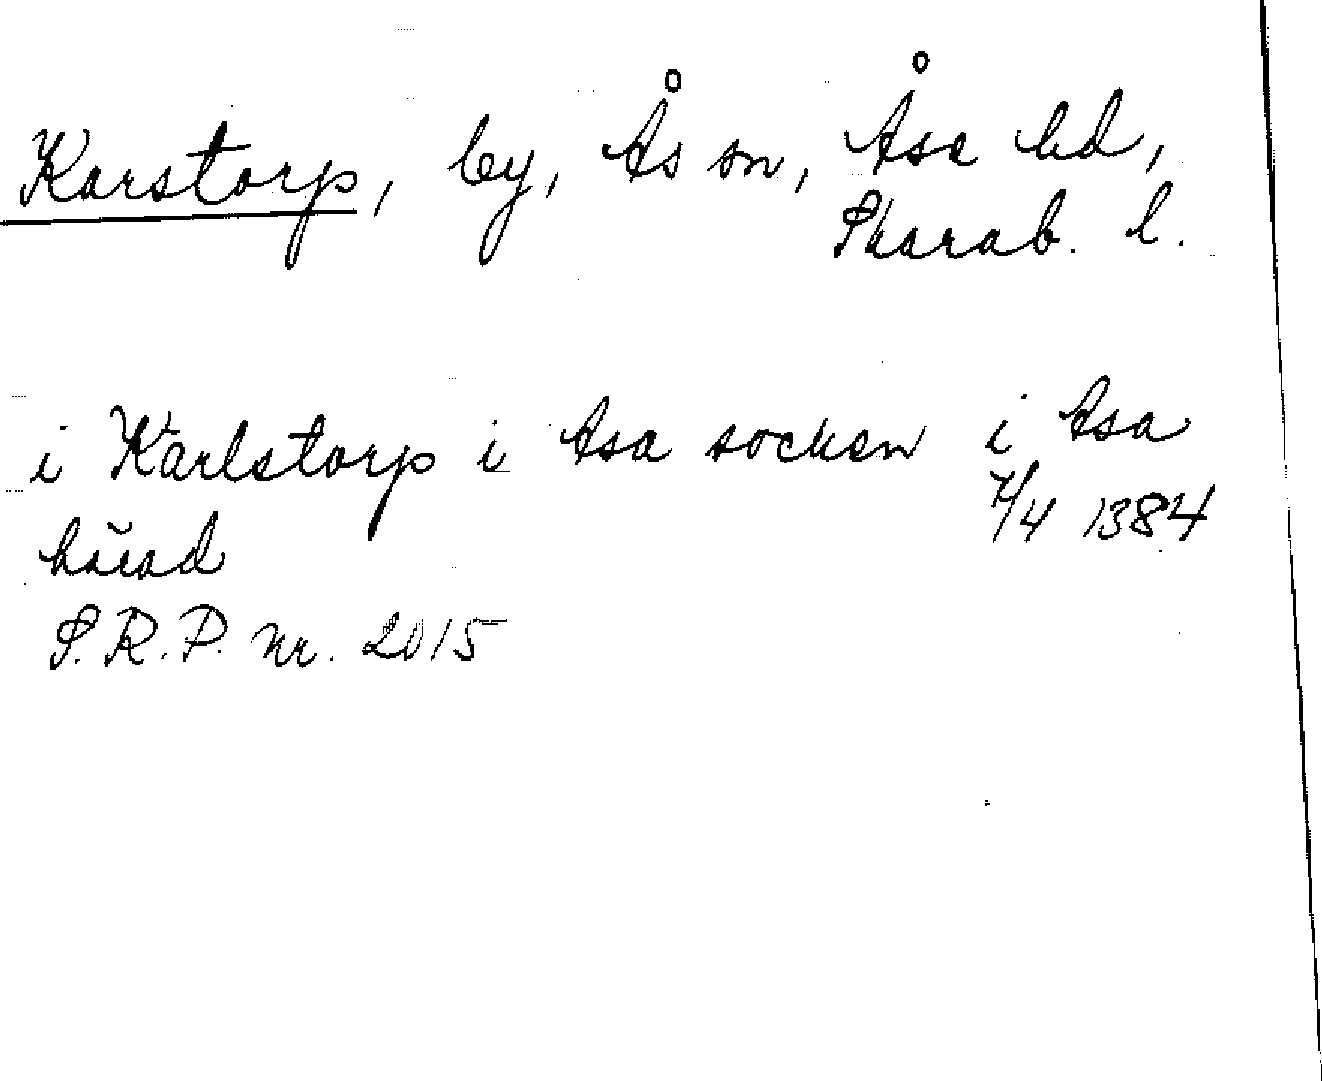 Karstorp, by, Ås sn, Åse hd,
Skarab. l.
i Karlstorp i Asa socken i Asa
härad 7/4 1384
S.R.P. nr. 2015